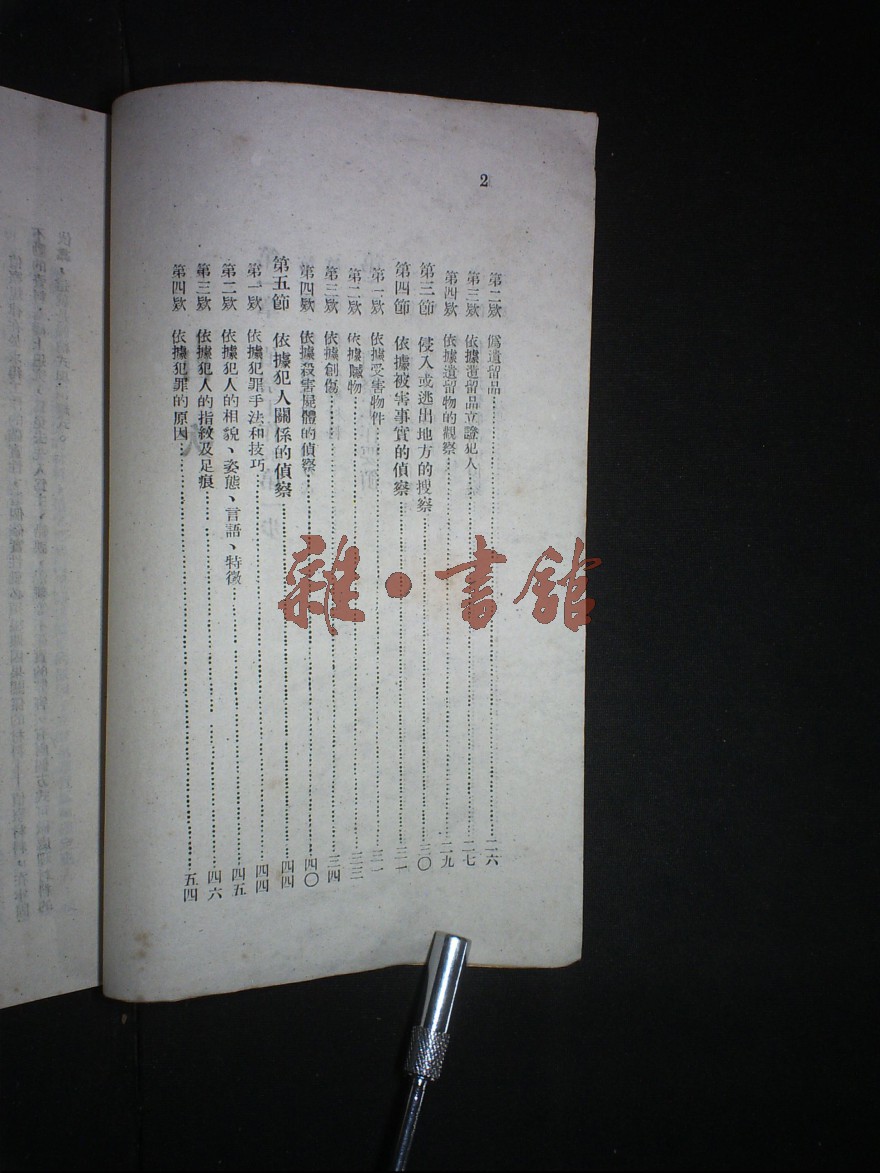 2
第二欵 僞遺留品……二六
第三欵 依據遺留品立證犯人……二七
第四欵 依據遺留物的觀察……二九
第三節 侵入或逃出地方的搜察……三〇
第四節 依據被害事實的偵察……三一
第一欵 依據受害物件……三一
第二欵 依據贓物……三三
第三欵 依據創傷……三四
第四欵 依據殺害屍體的偵察……四〇
第五節 依據犯人關係的偵察……四四
第一欵 依據犯罪手法和技巧……四四
第二欵 依據犯人的相貌、姿態、言語、特徵……四五
第三欵 依據犯人的指紋及足痕……四六
第四欵 依據犯罪的原因……五四
雜·書館